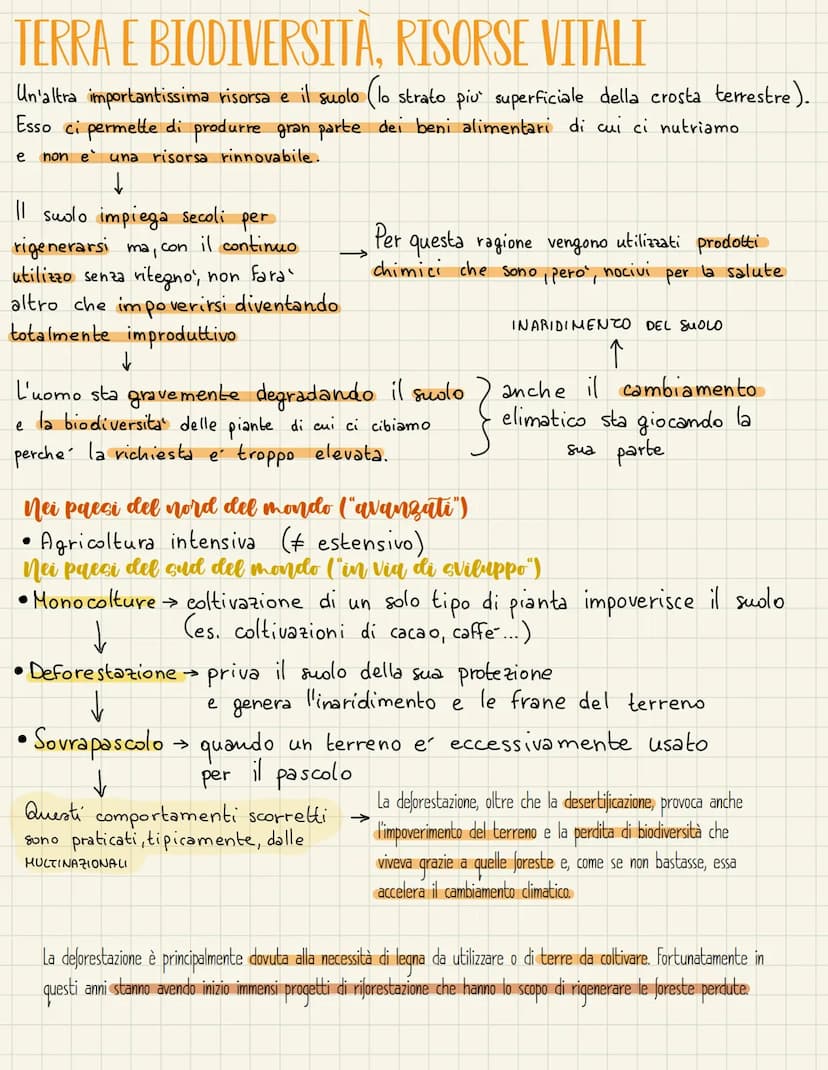 TERRA E BIODIVERSITÀ, RISORSE VITALI
Un'altra importantissima risorsa e il suolo (lo strato piu` superficiale della crosta terrestre).
Esso ci permette di produrre gran parte dei beni alimentari di cui ci nutriamo
e non e` una risorsa rinnovabile.
↓
Il suolo impiega secoli per
rigenerarsi ma, con il continuo
utilizzo senza ritegno`, non fara`
altro che impoverirsi diventando
totalmente improduttivo
→ Per questa ragione vengono utilizzati prodotti
chimici che sono, pero`, nocivi per la salute
INARIDIMENTO DEL SUOLO
↑
↓
L'uomo sta gravemente degradando il suolo
e la biodiversita` delle piante di cui ci cibiamo
perche´ la richiesta e` troppo elevata.
} anche il cambiamento
climatico sta giocando la
sua parte
Nei paesi del nord del mondo ("avanzati")
• Agricoltura intensiva (≠ estensivo)
Nei paesi del sud del mondo ("in via di sviluppo")
• Monocolture → coltivazione di un solo tipo di pianta impoverisce il suolo
↓ (es. coltivazioni di cacao, caffe´...)
• Deforestazione → priva il suolo della sua protezione
↓ e genera l'inaridimento e le frane del terreno
• Sovrapascolo → quando un terreno e´ eccessivamente usato
↓ per il pascolo
Questi comportamenti scorretti
sono praticati, tipicamente, dalle
MULTINAZIONALI
→ La deforestazione, oltre che la desertificazione, provoca anche
l'impoverimento del terreno e la perdita di biodiversità che
viveva grazie a quelle foreste e, come se non bastasse, essa
accelera il cambiamento climatico.
La deforestazione è principalmente dovuta alla necessità di legna da utilizzare o di terre da coltivare. Fortunatamente in
questi anni stanno avendo inizio immensi progetti di riforestazione che hanno lo scopo di rigenerare le foreste perdute.